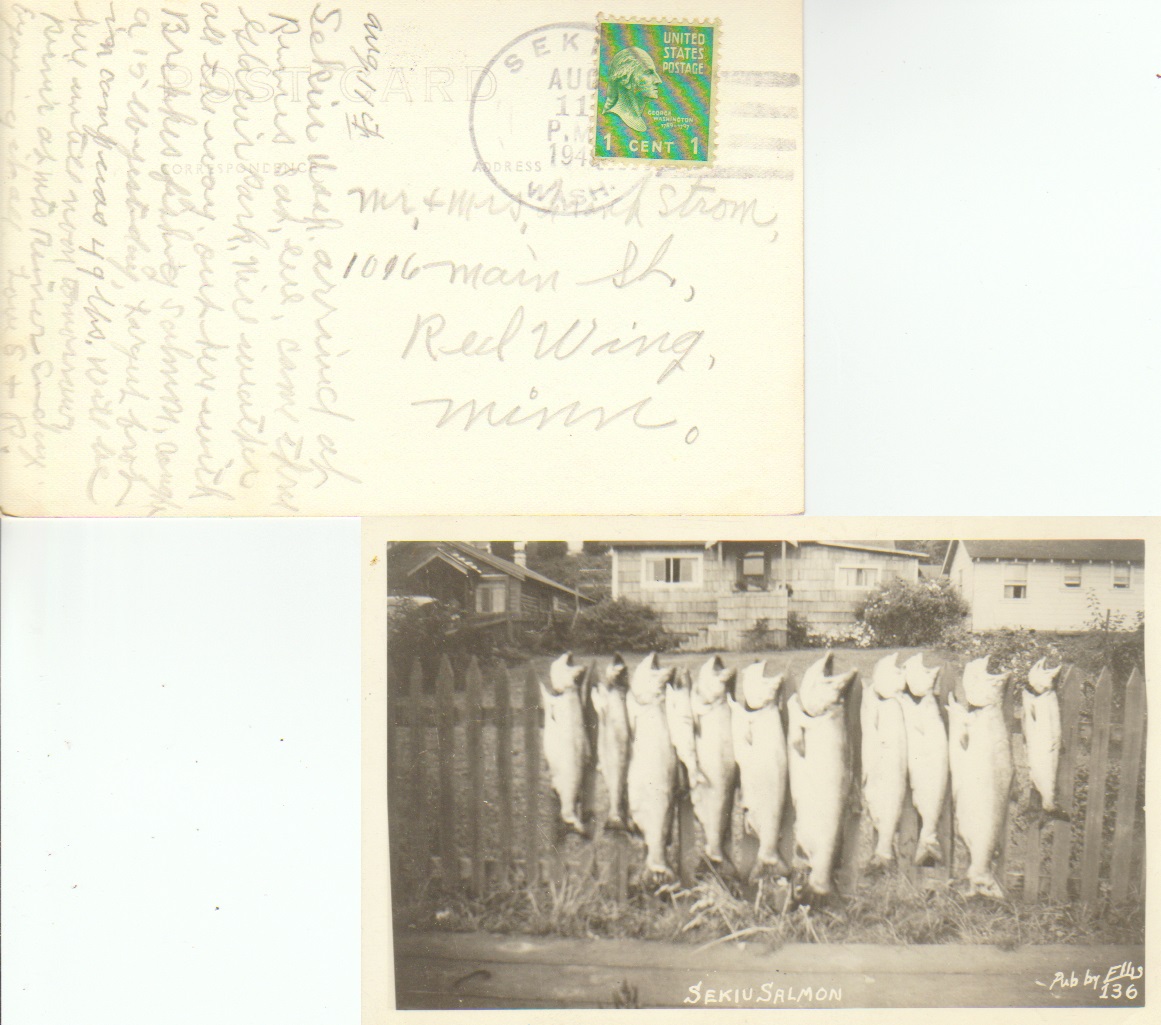 POST CARD
CORRESPONDENCE
ADDRESS
SEK
AUG
11
P.M.
194
WASH.
UNITED
STATES
POSTAGE
GEORGE
WASHINGTON
1789-1797
1 CENT 1
Aug 11
Sekiu Wash. arrived at
came thru
Glacier Park, nice weather
all the way, out here with
fishing salmon, caught
a 15 lb yesterday, largest brot
in camp was 49 lbs. Will be
here until noon tomorrow
Love S + R.
Mr. + Mrs. Strom,
1016 Main St.,
Red Wing,
Minn.
SEKIU SALMON
Pub by Ellis
136